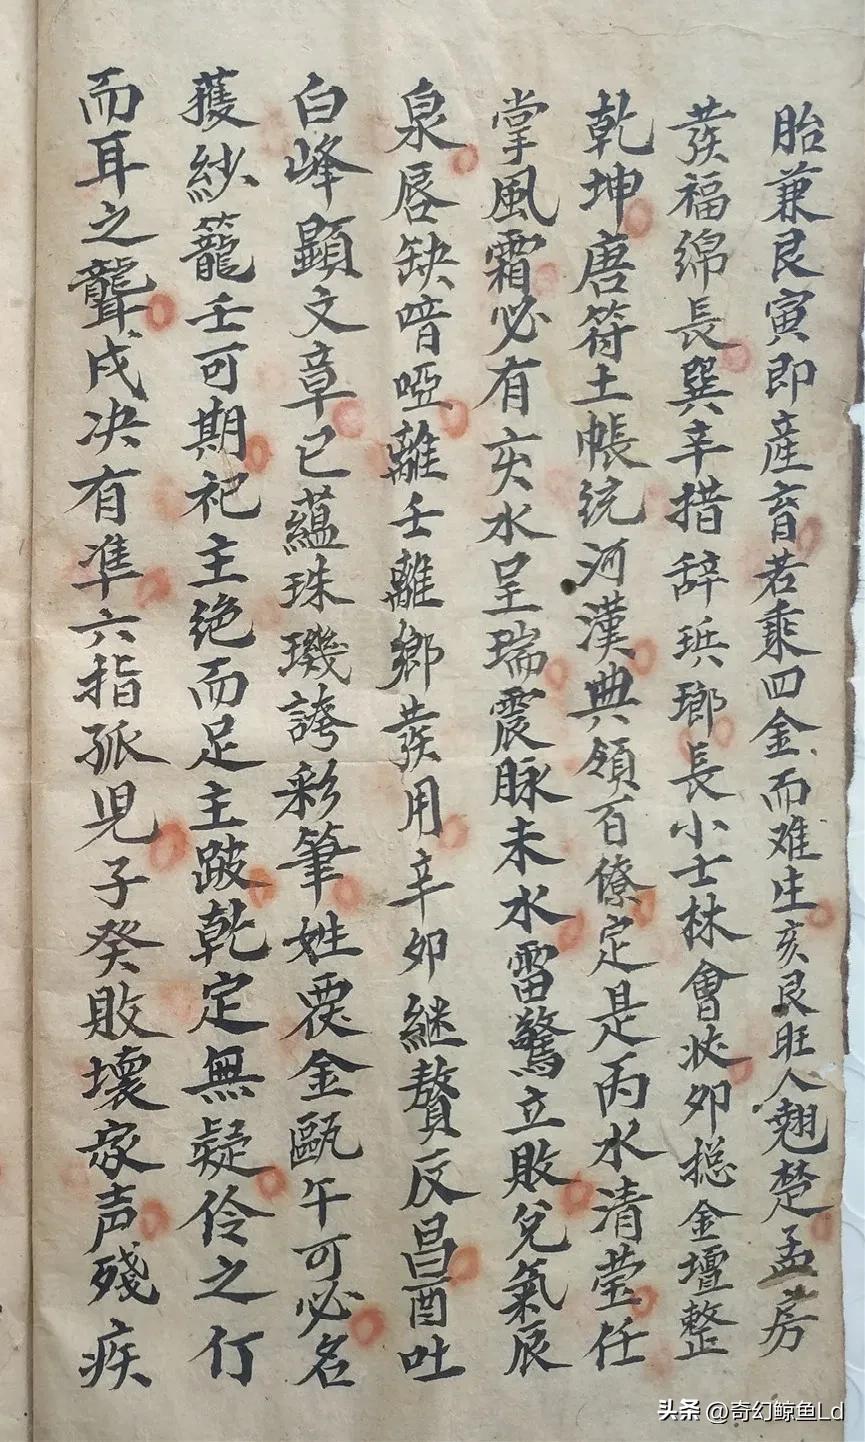 胎兼艮寅即產育若乘四金而难生亥艮旺人翘楚孟房
發福綿長巽辛措辞珙瑯長小士林會状夘揔金壇整
乾坤唐符土帳统河漢典領百僚定是丙水清莹任
掌風霜必有亥水呈瑞震脉未水雷驚立敗兌氣辰
泉唇缺喑啞離壬離鄉發用辛夘継贅反昌酉吐
白峰顯文章巳蘊珠璣誇彩筆姓覆金甌午可必名
獲紗籠壬可期祀主绝而足主跛乾定無疑伶之仃
而耳之聾戌决有準六指孤児子癸敗壞家声殘疾
头条 @奇幻鲸鱼Ld